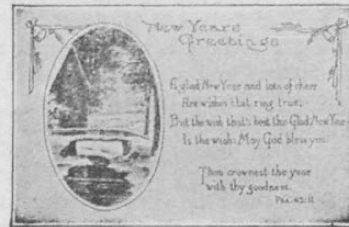 New Years
Greetings
A glad New Year and lots of cheer
Are wishes that ring true;
But the wish that's best this Glad New Year
Is the wish: May God bless you.
Thou crownest the year
with thy goodness.
Psa. 65:11